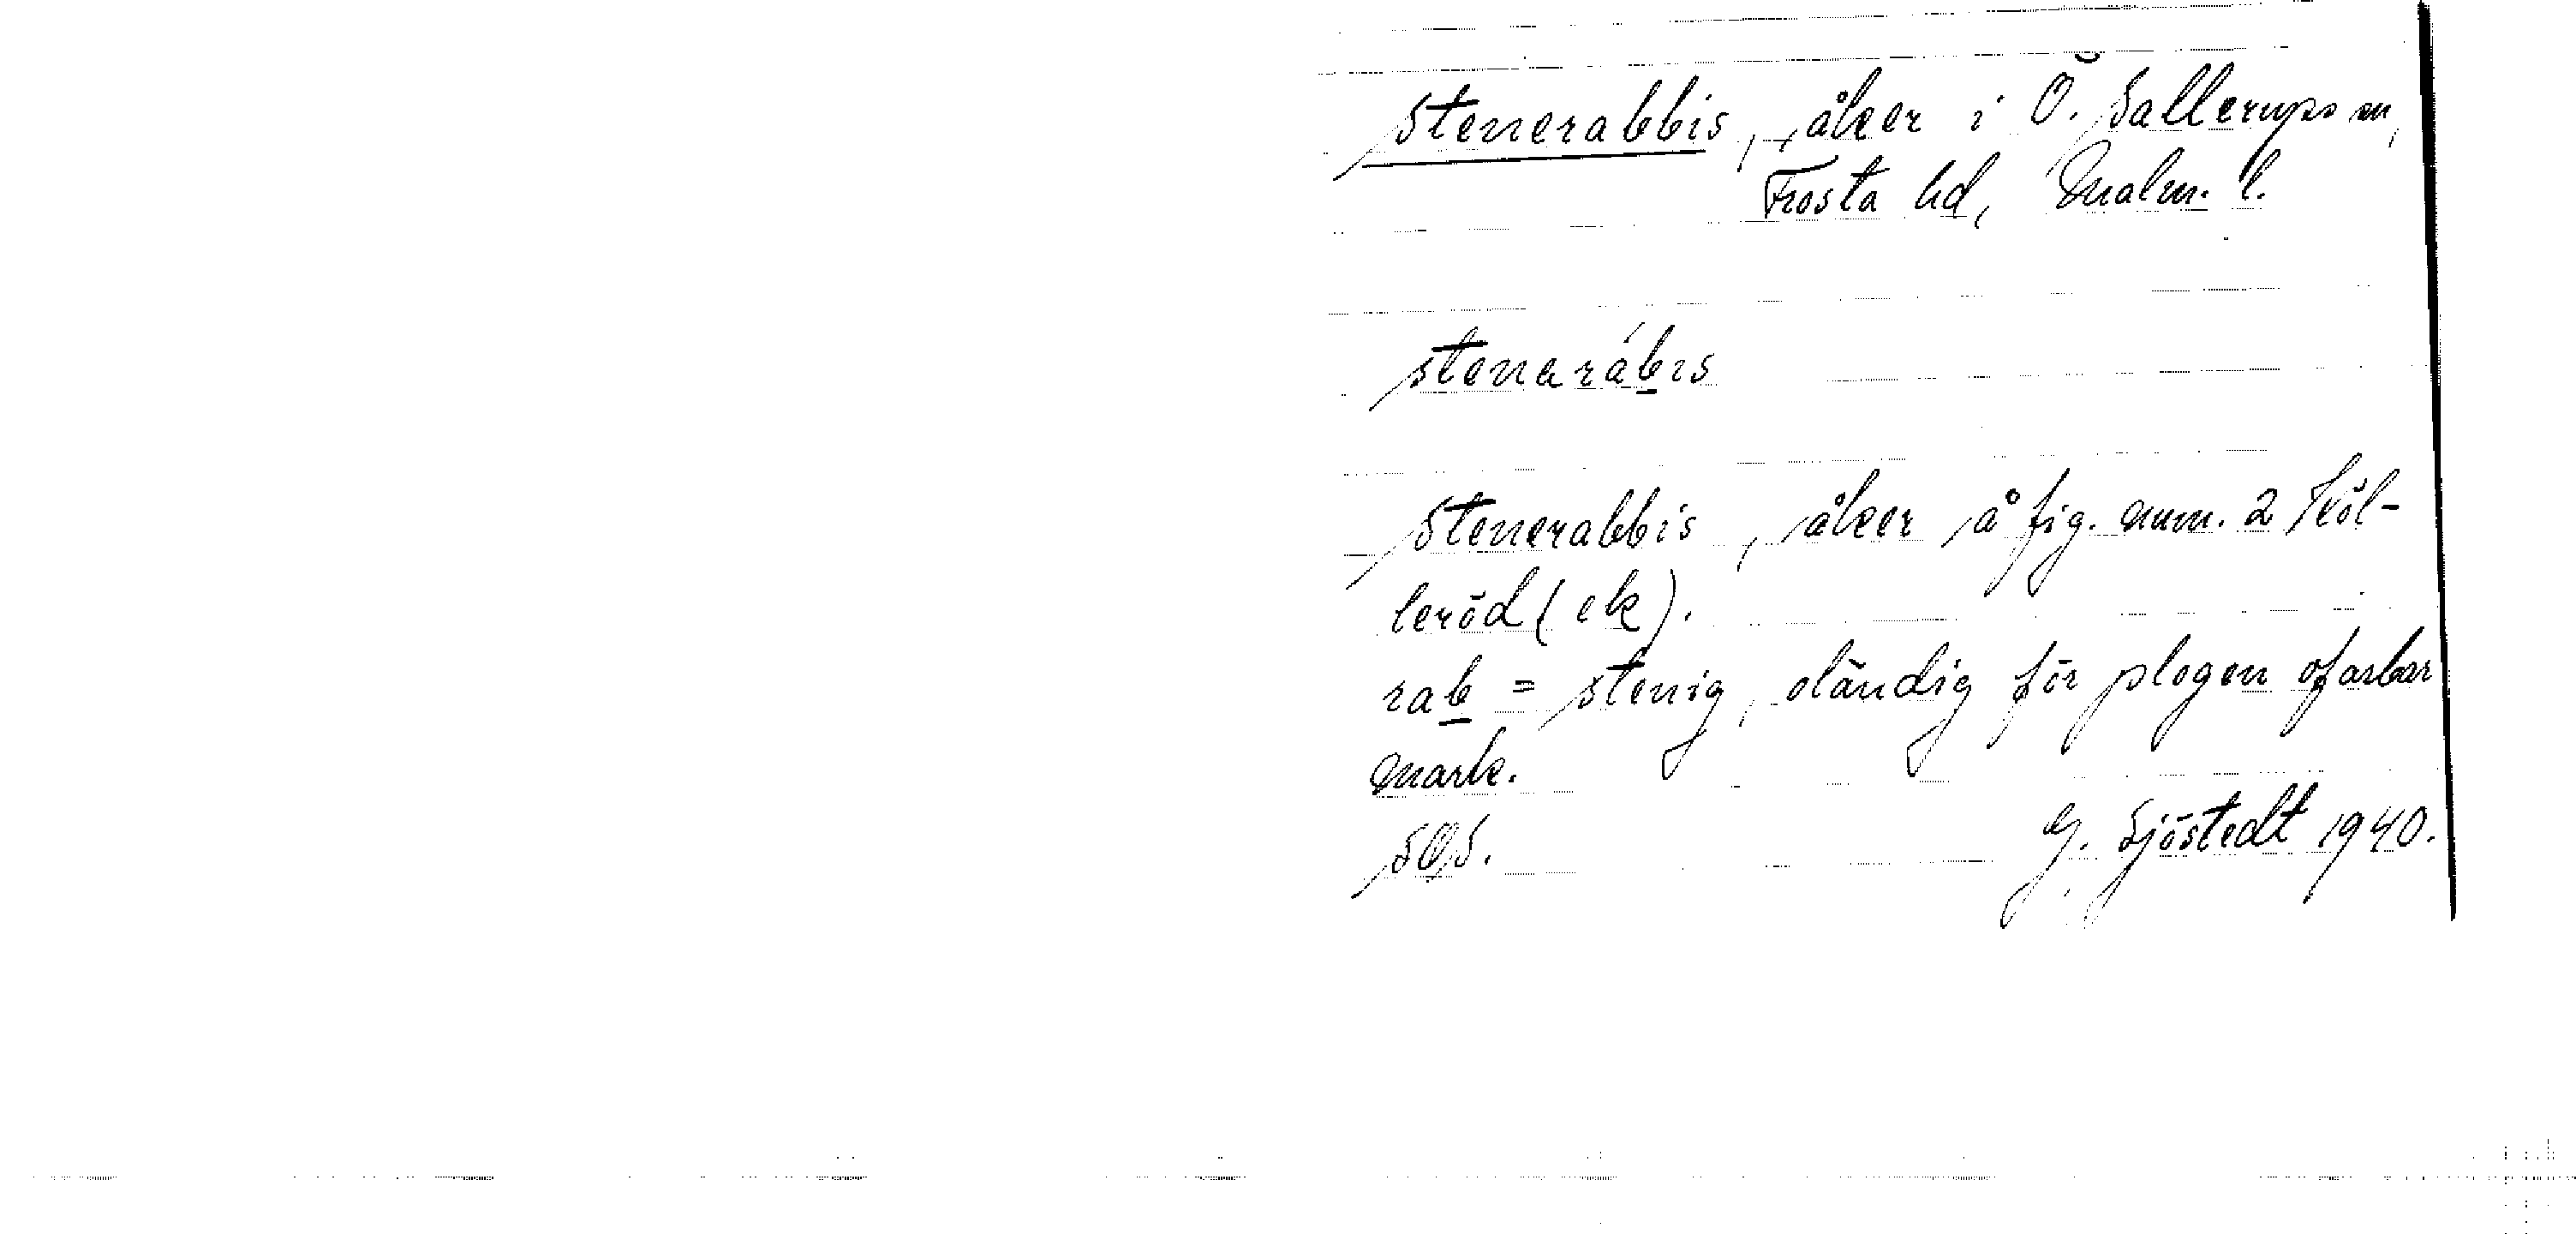 Stenerabbis, åker i Ö. Sallerups sn,
Frosta hd, Malm. l.
stenarábis
Stenerabbis, åker å fig. num. 2 Köl-
leröd (ek).
rab = stenig, oländig för plogen ofarbar
mark.
G. Sjöstedt 1940.